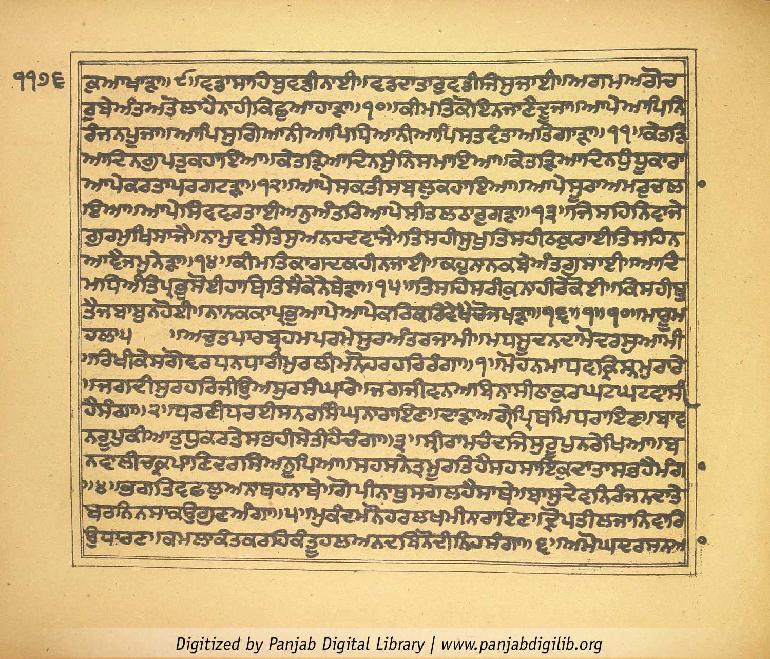 ੧੧੭੬
ਕੁਆਖਾੜਾ॥੯॥ਵਡਾਸਾਹਿਬੁਵਡੀਨਾਈ॥ਵਡਦਾਤਾਰੁਵਡੀਜਿਸੁਜਾਈ॥ਅਗਮਅਗੋਚ
ਰੁਬੇਅੰਤਅਤੋਲਾਹੈਨਾਹੀਕਿਛੁਆਹਾੜਾ॥੧੦॥ਕੀਮਤਿਕੋਇਨਜਾਣੈਦੂਜਾ॥ਆਪੇਆਪਿਨਿ
ਰੰਜਨਪੂਜਾ॥ਆਪਿਸੁਗਿਆਨੀਆਪਿਧਿਆਨੀਆਪਿਸਤਵੰਤਾਅਤਿਗਾੜਾ॥੧੧॥ਕੇਤੜਿ
ਆਦਿਨਗੁਪਤੁਕਹਾਇਆ॥ਕੇਤੜਿਆਦਿਨਸੁੰਨਿਸਮਾਇਆ॥ਕੇਤੜਿਆਦਿਨਧੁੰਧੂਕਾਰਾ
ਆਪੇਕਰਤਾਪਰਗਟੜਾ॥੧੨॥ਆਪੇਸਕਤੀਸਬਲੁਕਹਾਇਆ॥ਆਪੇਸੂਰਾਅਮਰੁਚਲ
ਇਆ॥ਆਪੇਸਿਵਵਰਤਾਈਅਨੁਅੰਤਰਿਆਪੇਸੀਤਲਠਰੁਗੜਾ॥੧੩॥ਜਿਸਹਿਨਿਵਾਜੇ
ਗੁਰਮੁਖਿਸਾਜੇ॥ਨਾਮੁਵਸੈਤਿਸੁਅਨਹਦਵਾਜੇ॥ਤਿਸਹੀਸੁਖੁਤਿਸਹੀਠਕੁਰਾਈਤਿਸਹਿਨ
ਆਵੈਜਮੁਨੇੜਾ॥੧੪॥ਕੀਮਤਿਕਾਗਦਕਹੀਨਜਾਈ॥ਕਹੁਨਾਨਕਬੇਅੰਤਗੁਸਾਈ॥ਆਦਿ
ਮਧਿਅੰਤਿਪ੍ਰਭੁਸੋਈਹਾਥਿਤਿਸੈਕੈਨੇਬੇੜਾ॥੧੫॥ਤਿਸਹਿਸਰੀਕੁਨਾਹੀਰੇਕੋਈ॥ਕਿਸਹੀਬੁ
ਤੈਜਬਾਬੁਨਹੋਈ॥ਨਾਨਕਕਾਪ੍ਰਭੁਆਪੇਆਪੇਕਰਿਕਰਿਵੇਖੈਚੋਜਖੜਾ॥੧੬॥੧॥੧੦॥ਮਾਰੂਮ
ਹਲਾ੫ ॥ਅਚੁਤਪਾਰਬ੍ਰਹਮਪਰਮੇਸੁਰਅੰਤਰਜਾਮੀ॥ਮਧੁਸੂਦਨਦਾਮੋਦਰਸੁਆਮੀ
॥ਰਿਖੀਕੇਸਗੋਵਰਧਨਧਾਰੀਮੁਰਲੀਮਨੋਹਰਹਰਿਰੰਗਾ॥੧॥ਮੋਹਨਮਾਧਵਕ੍ਰਿਸ੍ਨਮੁਰਾਰੇ
॥ਜਗਦੀਸੁਰਹਰਿਜੀਉਅਸੁਰਸੰਘਾਰੇ॥ਜਗਜੀਵਨਅਬਿਨਾਸੀਠਾਕੁਰਘਟਘਟਵਾਸੀ
ਹੈਸੰਗਾ॥੨॥ਧਰਣੀਧਰਈਸਨਰਸਿੰਘਨਾਰਾਇਣ॥ਦਾੜਾਅਗ੍ਰੇਪ੍ਰਿਥਮਿਧਰਾਇਣ॥ਬਾਵ
ਨਰੂਪੁਕੀਆਤੁਧੁਕਰਤੇਸਭਹੀਸੇਤੀਹੈਚੰਗਾ॥੩॥ਸ੍ਰੀਰਾਮਚੰਦਜਿਸੁਰੂਪੁਨਰੇਖਿਆ॥ਬ
ਨਵਾਲੀਚਕ੍ਰਪਾਣਿਦਰਸਿਅਨੂਪਿਆ॥ਸਹਸਨੇਤ੍ਰਮੂਰਤਿਹੈਸਹਸਾਇਕੁਦਾਤਾਸਭਹੈਮੰਗਾ
॥੪॥ਭਗਤਿਵਛਲੁਅਨਾਥਹਨਾਥੇ॥ਗੋਪੀਨਾਥੁਸਗਲਹੈਸਾਥੇ॥ਬਾਸੁਦੇਵਨਿਰੰਜਨਦਾਤੇ
ਬਰਨਿਨਸਾਕਉਗੁਣਅੰਗਾ॥੫॥ਮੁਕੰਦਮਨੋਹਰਲਖਮੀਨਰਾਇਣ॥ਦ੍ਰੋਪਤੀਲਜਾਨਿਵਾਰਿ
ਉਧਾਰਣ॥ਕਮਲਾਕੰਤਕਰਹਿਕੰਤੂਹਲਅਨਦਬਿਨੋਦੀਨਿਹਸੰਗਾ॥੬॥ਅਮੋਘਦਰਸਨਅ
Digitized by Panjab Digital Library | www.panjabdigilib.org